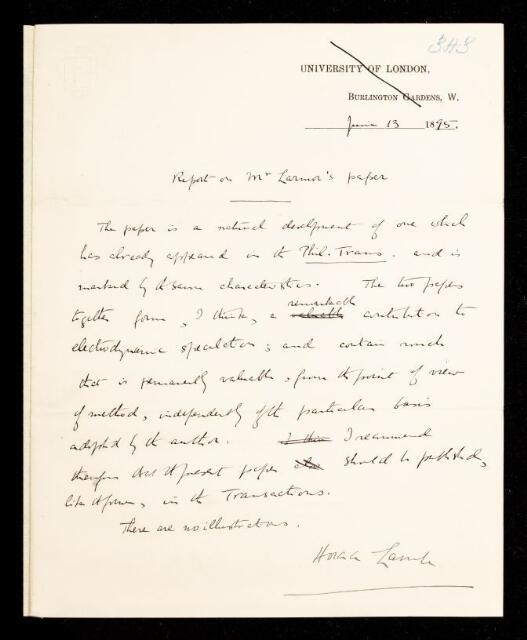 343
UNIVERSITY OF LONDON,
BURLINGTON GARDENS, W.
June 13 1895.
Report on Mr Larmor's paper
The paper is a natural development of one which
has already appeared in the Phil. Trans. and is
marked by the same characteristics. The two papers
remarkable
together form, I think, a valuable contribution to
electrodynamic speculation; and contain much
that is permanently valuable, from the point of view
of method, independently of the particular basis
adopted by the author. I think I recommend
therefore that the present paper also should be published,
like the former, in the Transactions.
There are no illustrations.
Horace Lamb